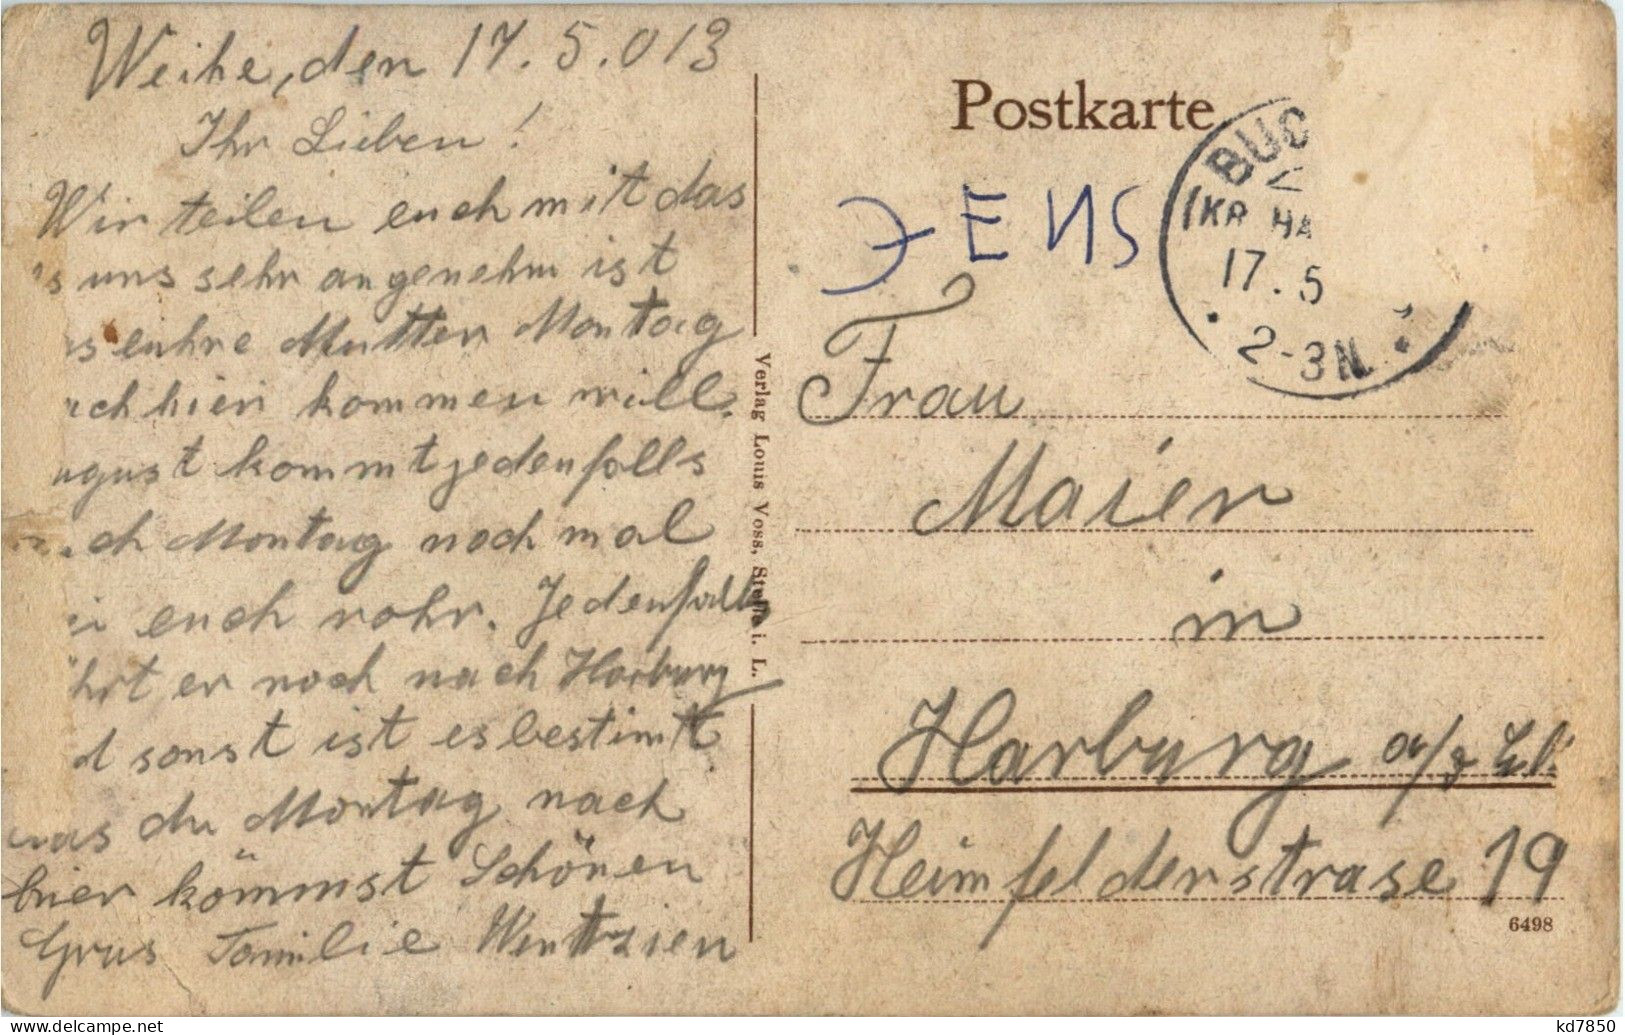 Weihe, den 17.5.013
Ihr Lieben!
Wir teilen euch mit das
s uns sehr angenehm ist
s euhre Mutter Montag
ch hier kommen will.
ugust kommt jedenfalls
ch Montag noch mal
ei euch rohr. Jedenfalls
hrt er noch nach Harburg
d sonst ist es bestimt
was du Montag nach
hier kömmst Schönen
Grus Familie Wentzien
Verlag Louis Voss, Stelle i. L.
Postkarte
BUC
(KR HA
17.5
2-3N.
JENS
Frau
Maier
in
Harburg a/
Heimfelderstrase 19
6498
delcampe.net
kd7850